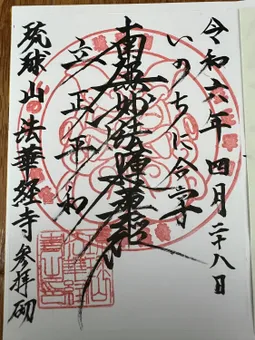 令和六年四月二十八日
いのちに合掌
南無妙法蓮華経
立正平和
琉球山法華経寺参拝砌